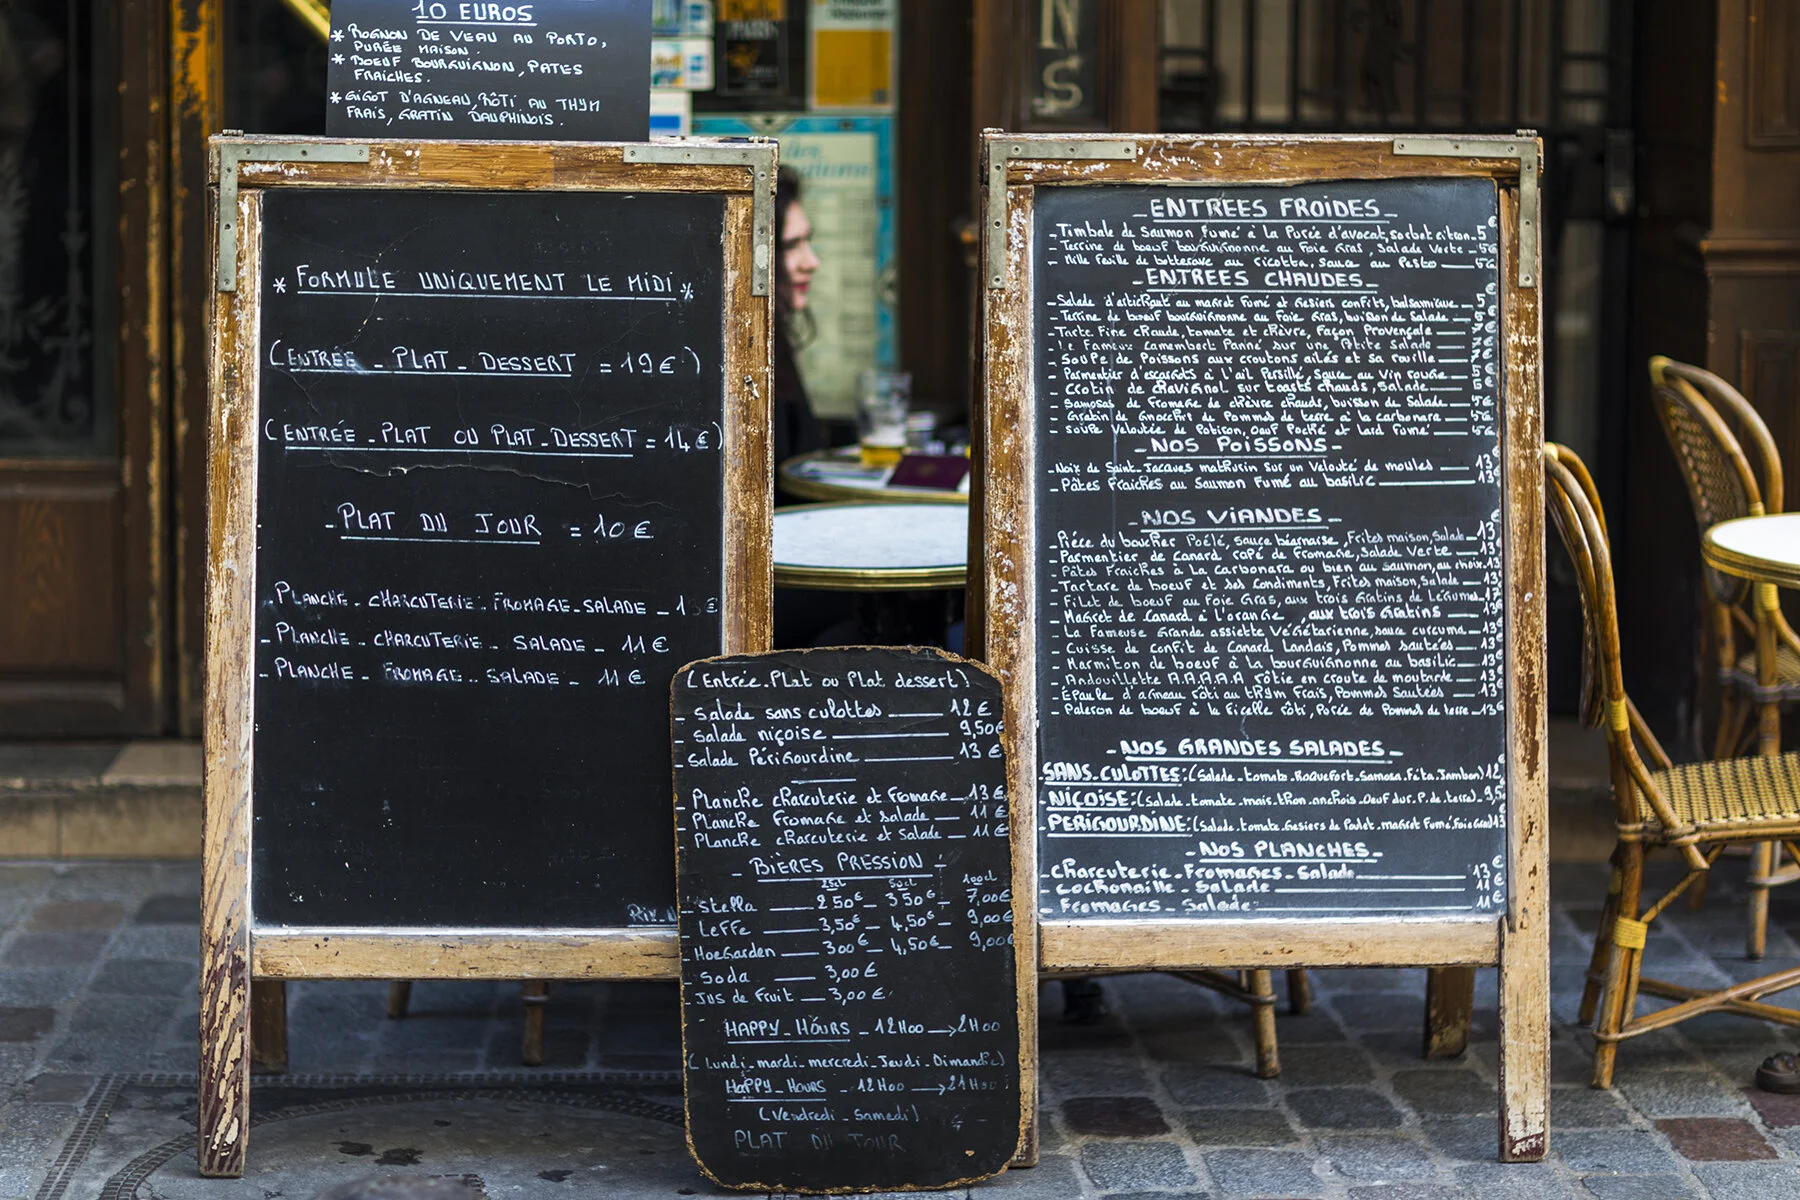 10 EUROS
* ROGNON DE VEAU AU PORTO,
PURÉE MAISON.
* BOEUF BOURGUIGNON, PATES
FRAICHES.
* GIGOT D'AGNEAU, RÔTI AU THYM
FRAIS, GRATIN DAUPHINOIS.
* FORMULE UNIQUEMENT LE MIDI *
(ENTRÉE - PLAT - DESSERT = 19€)
(ENTRÉE - PLAT OU PLAT - DESSERT = 14€)
- PLAT DU JOUR = 10€
- PLANCHE - CHARCUTERIE - FROMAGE - SALADE - 13€
- PLANCHE - CHARCUTERIE - SALADE - 11€
- PLANCHE - FROMAGE - SALADE - 11€
(Entrée - Plat ou Plat dessert)
- Salade sans culottes 12€
- Salade niçoise 9,50€
- Salade Périgourdine 13€
- Planche charcuterie et Fromage 13€
- Planche Fromage et Salade 11€
- Planche charcuterie et Salade 11€
- BIÈRES PRESSION -
25cl 50cl 100cl
- Stella 2 50€ - 3 50€ - 7,00€
- Leffe 3,50€ - 4,50€ - 9,00€
- Hoegarden 3 00€ - 4,50€ - 9,00€
- Soda 3,00€
- Jus de Fruit 3,00€
HAPPY - HOURS - 12H00 → 2H00
(Lundi - mardi - mercredi - Jeudi - Dimanche)
HAPPY - HOURS - 12H00 → 21H30
(Vendredi - Samedi)
PLAT DU JOUR
- ENTREES FROIDES -
- Timbale de Saumon Fumé à la Purée d'avocat, sorbet citron - 5€
- Terrine de boeuf bourguignonne au Foie Gras, Salade Verte - 5€
- Mille Feuille de betterave au ricotta, sauce au Pesto 5€
- ENTREES CHAUDES -
- Salade d'artichaut au magret Fumé et Gesiers confits, balsamique 5€
- Terrine de boeuf bourguignonne au Foie Gras, buisson de Salade 5€
- Tarte Fine chaude, tomate et chèvre, Façon Provençale 7€
- Le Fameux Camembert Panné sur une Petite Salade 7€
- Soupe de Poissons aux croutons ailés et sa rouille 7€
- Parmentier d'escargots à l'ail Persillé, Sauce au Vin rouge 5€
- Crotin de chavignol sur toasts chauds, Salade 5€
- Samosas de Fromage de chèvre chauds, buisson de Salade 5€
- Gratin de Gnocchis de Pommes de terre à la carbonara 5€
- Soupe Veloutée de Potiron, Oeuf Poché et Lard Fumé 5€
- NOS POISSONS -
- Noix de Saint-Jacques mathurin sur un Velouté de moules 13€
- Pâtes Fraiches au Saumon Fumé au basilic 13€
- NOS VIANDES -
- Piéce du boucher Poélé, sauce béarnaise, Frites maison, Salade 13€
- Parmentier de canard rapé de Fromage, Salade Verte 13€
- Pâtes Fraiches à La Carbonara ou bien au saumon, au choix. 13€
- Tartare de boeuf et ses condiments, Frites maison, Salade 13€
- Filet de boeuf au Foie Gras, aux trois Gratins de Legumes 17€
- Magret de canard à l'orange, aux trois Gratins 13€
- La Fameuse Grande assiette Végétarienne, sauce curcuma 13€
- Cuisse de confit de Canard Landais, Pommes sautées 13€
- Marmiton de boeuf à la bourguignonne au basilic 13€
- Andouillette A.A.A.A.A rôtie en croute de moutarde 13€
- Épaule d'agneau rôti au thym Frais, Pommes Sautées 13€
- Paleron de boeuf à la Ficelle rôti, Purée de Pommes de terre 13€
- NOS GRANDES SALADES -
- SANS-CULOTTES: (Salade - tomate - Roquefort - Samosa - Féta - Jambon) 12€
- NIÇOISE: (Salade - tomate - mais - thon - anchois - Oeuf dur - P. de terre) - 9,5€
- PERIGOURDINE: (Salade - tomate - Gesiers de Poulet - magret Fumé, Foie Gras) 13€
- NOS PLANCHES -
- Charcuterie - Fromages - Salade 13€
- Cochonaille - Salade 11€
- Fromages - Salade 11€